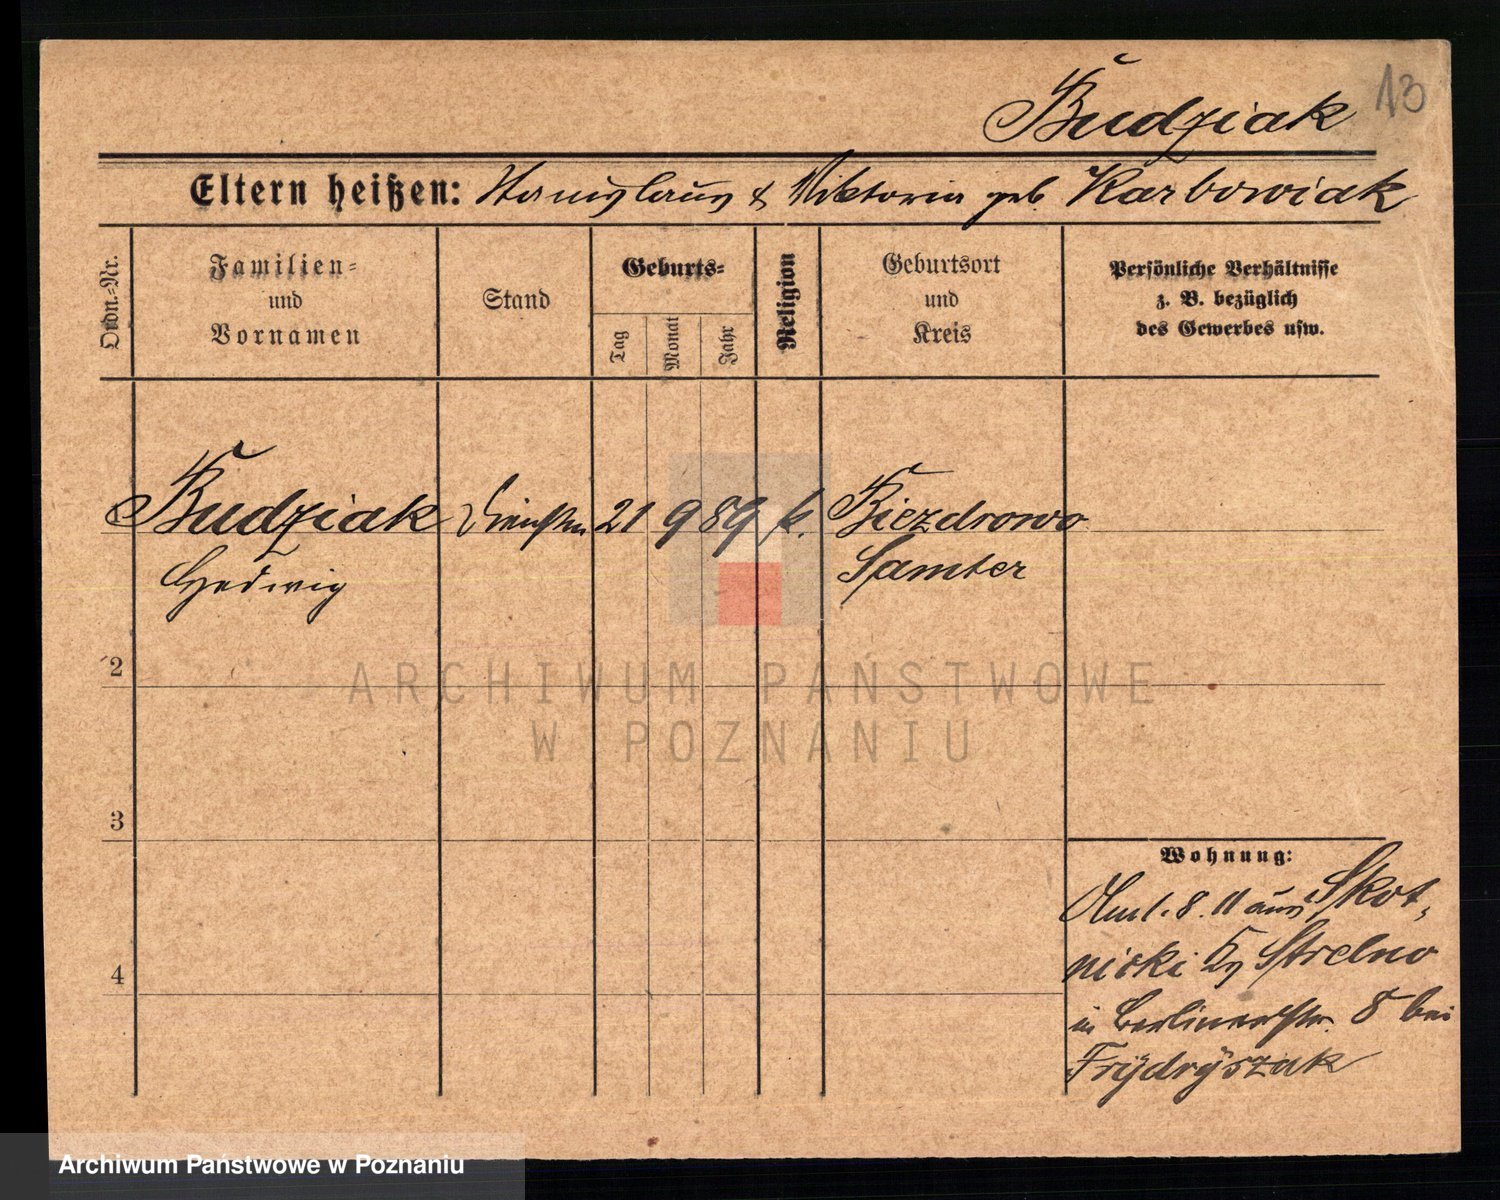 Budziak 13
Eltern heißen: Stanislaus & Viktoria geb. Karbowiak
Ordn.-Nr.
Familien-
und
Vornamen
Stand
Geburts-
Tag
Monat
Jahr
Religion
Geburtsort
und
Kreis
Persönliche Verhältnisse
z. B. bezüglich
des Gewerbes usw.
Budziak 21 9 89 k. Biezdrowo
Hedwig Samter
2
3
4
Wohnung:
8. 11 aus Skot-
nicki Strelno
in Berlinerstr. 8 bei
Frÿdrÿszak
ARCHIWUM PAŃSTWOWE
W POZNANIU
Archiwum Państwowe w Poznaniu